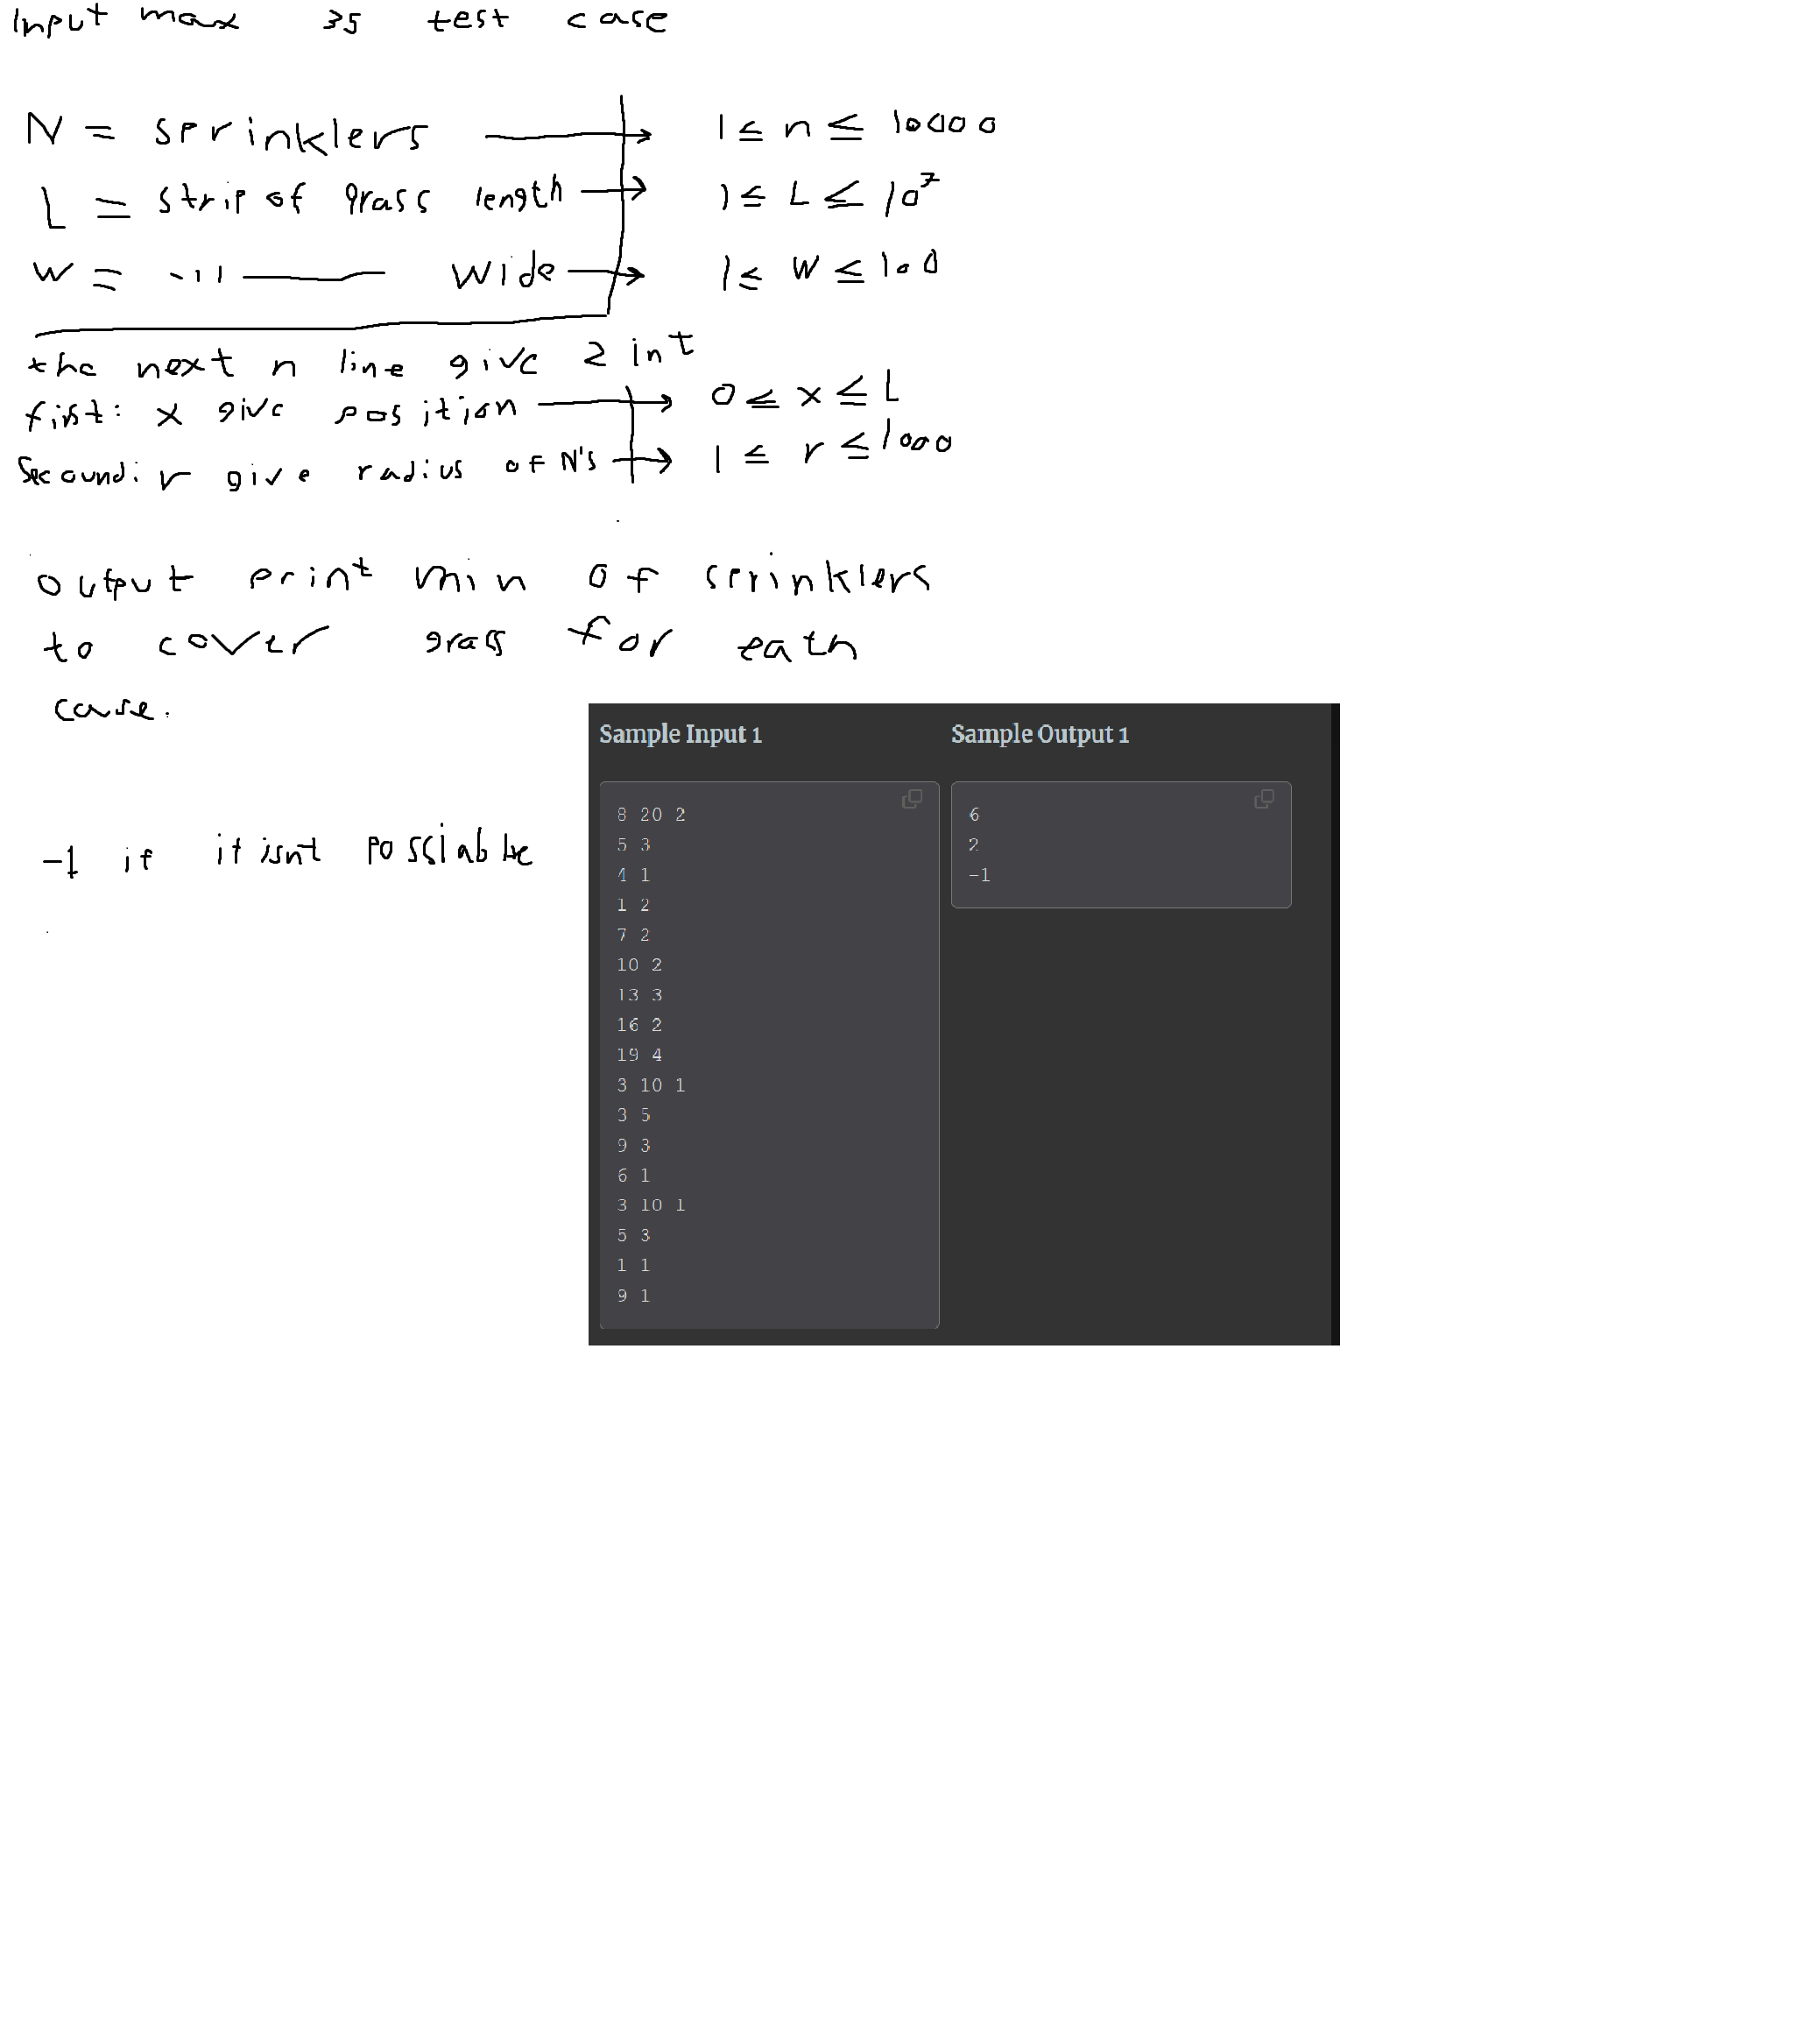 Input max 35 test case
N = sprinklers → 1 ≤ n ≤ 10000
L = strip of grass length → 1 ≤ L ≤ 10^7
W = -11— wide → 1 ≤ W ≤ 100
the next n line give 2 int
first: x give position → 0 ≤ x ≤ L
Secound: r give radius of N's → 1 ≤ r ≤ 1000
output print min of sprinklers
to cover grass for eath
case.
-1 if it isnt possiable
Sample Input 1
8 20 2
5 3
4 1
1 2
7 2
10 2
13 3
16 2
19 4
3 10 1
3 5
9 3
6 1
3 10 1
5 3
1 1
9 1
Sample Output 1
6
2
-1